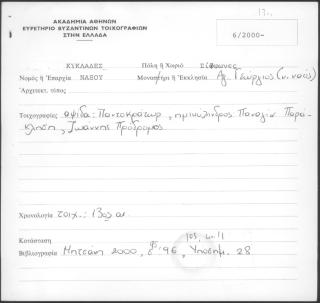 ΑΚΑΔΗΜΙΑ ΑΘΗΝΩΝ
ΕΥΡΕΤΗΡΙΟ ΒΥΖΑΝΤΙΝΩΝ ΤΟΙΧΟΓΡΑΦΙΩΝ
ΣΤΗΝ ΕΛΛΑΔΑ
6/2000-
ΚΥΚΛΑΔΕΣ Πόλη ἤ Χωριό
Νομός ἤ Ἐπαρχία ΝΑΞΟΥ Μοναστήρι ἤ Ἐκκλησία Αγ. Γεώργιος (ν. ναός)
Ἀρχιτεκτ. τύπος
Τοιχογραφίες αψίδα: Παντοκράτωρ, ημικύλινδρος Παναγία Παρά-
κληση, Ἰωάννης Πρόδρομος.
Χρονολογία τοιχ.: 13ος αι.
Κατάσταση
Βιβλιογραφία Μητσάνη 2000, 96, Υποσημ. 28